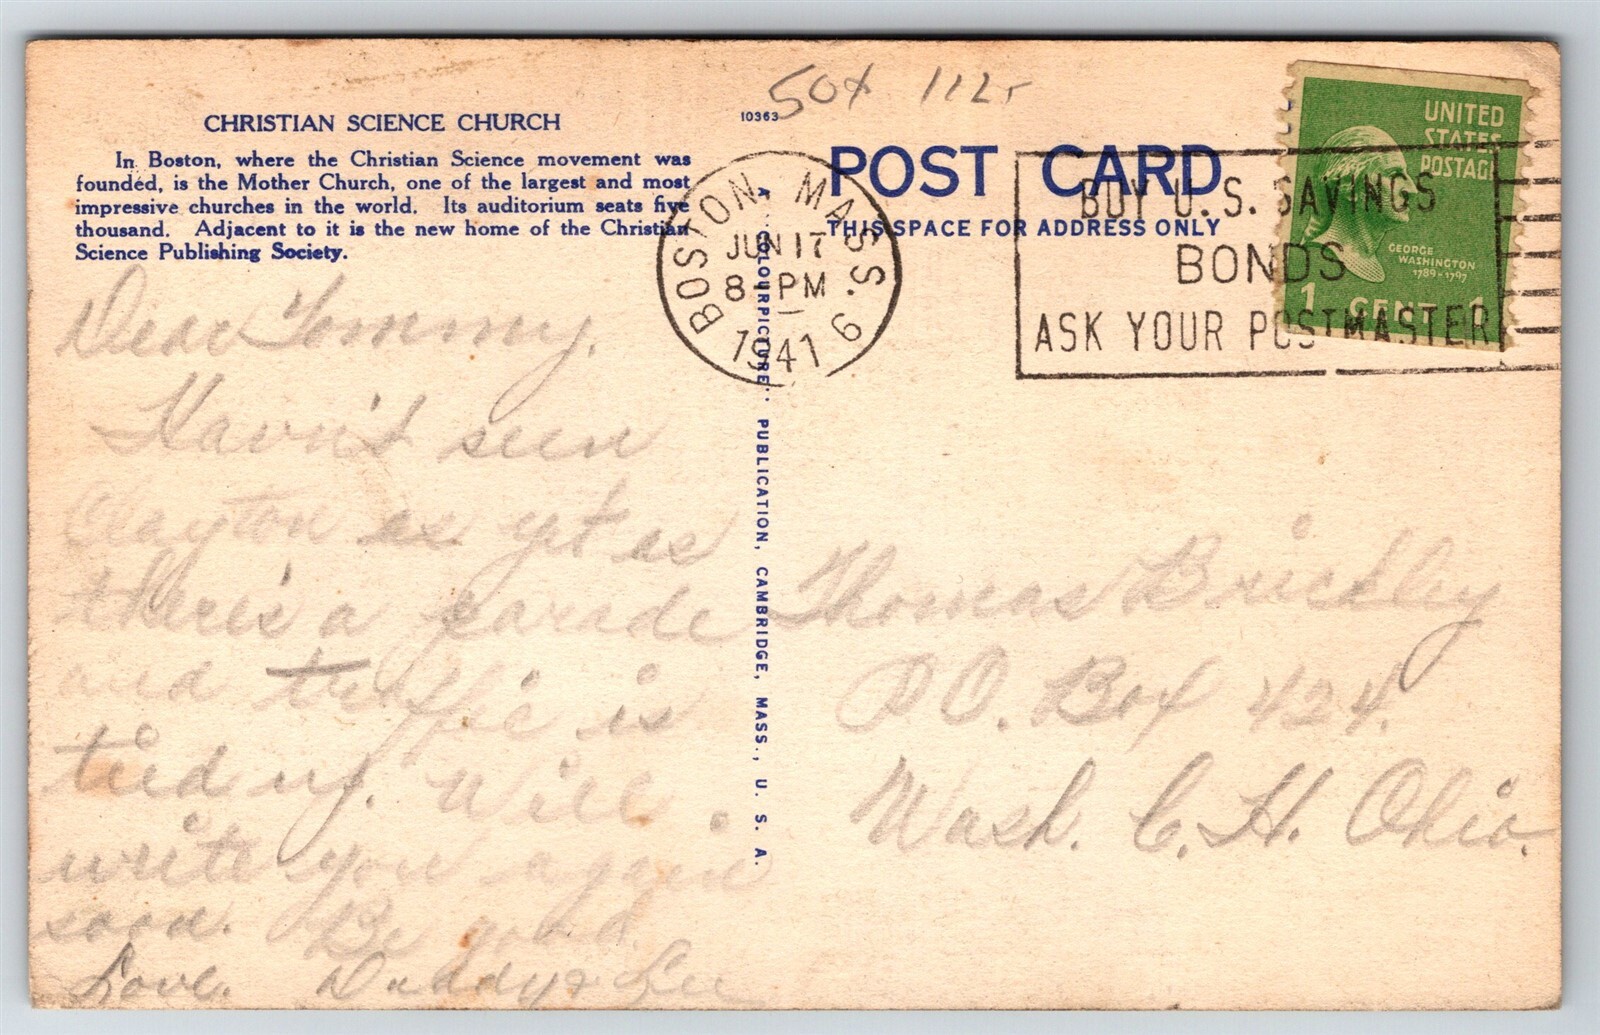 50¢
CHRISTIAN SCIENCE CHURCH
In Boston, where the Christian Science movement was
founded, is the Mother Church, one of the largest and most
impressive churches in the world. Its auditorium seats five
thousand. Adjacent to it is the new home of the Christian
Science Publishing Society.
Dear Tommy.
Havn't seen
Clayton as yet as
there's a parade
and traffic is
tied up. Will
write you again
soon. Be good.
Love. Daddy & Lee
10363
A "COLOURPICTURE" PUBLICATION, CAMBRIDGE, MASS., U. S. A.
BOSTON, MASS. 6
JUN 17
8 - PM
1941
POST CARD
THIS SPACE FOR ADDRESS ONLY
BUY U.S. SAVINGS
BONDS
ASK YOUR POSTMASTER
UNITED
STATES
POSTAGE
GEORGE
WASHINGTON
1789-1797
1 CENT 1
Thomas Brickley
P.O. Box 424.
Wash. C.H. Ohio.